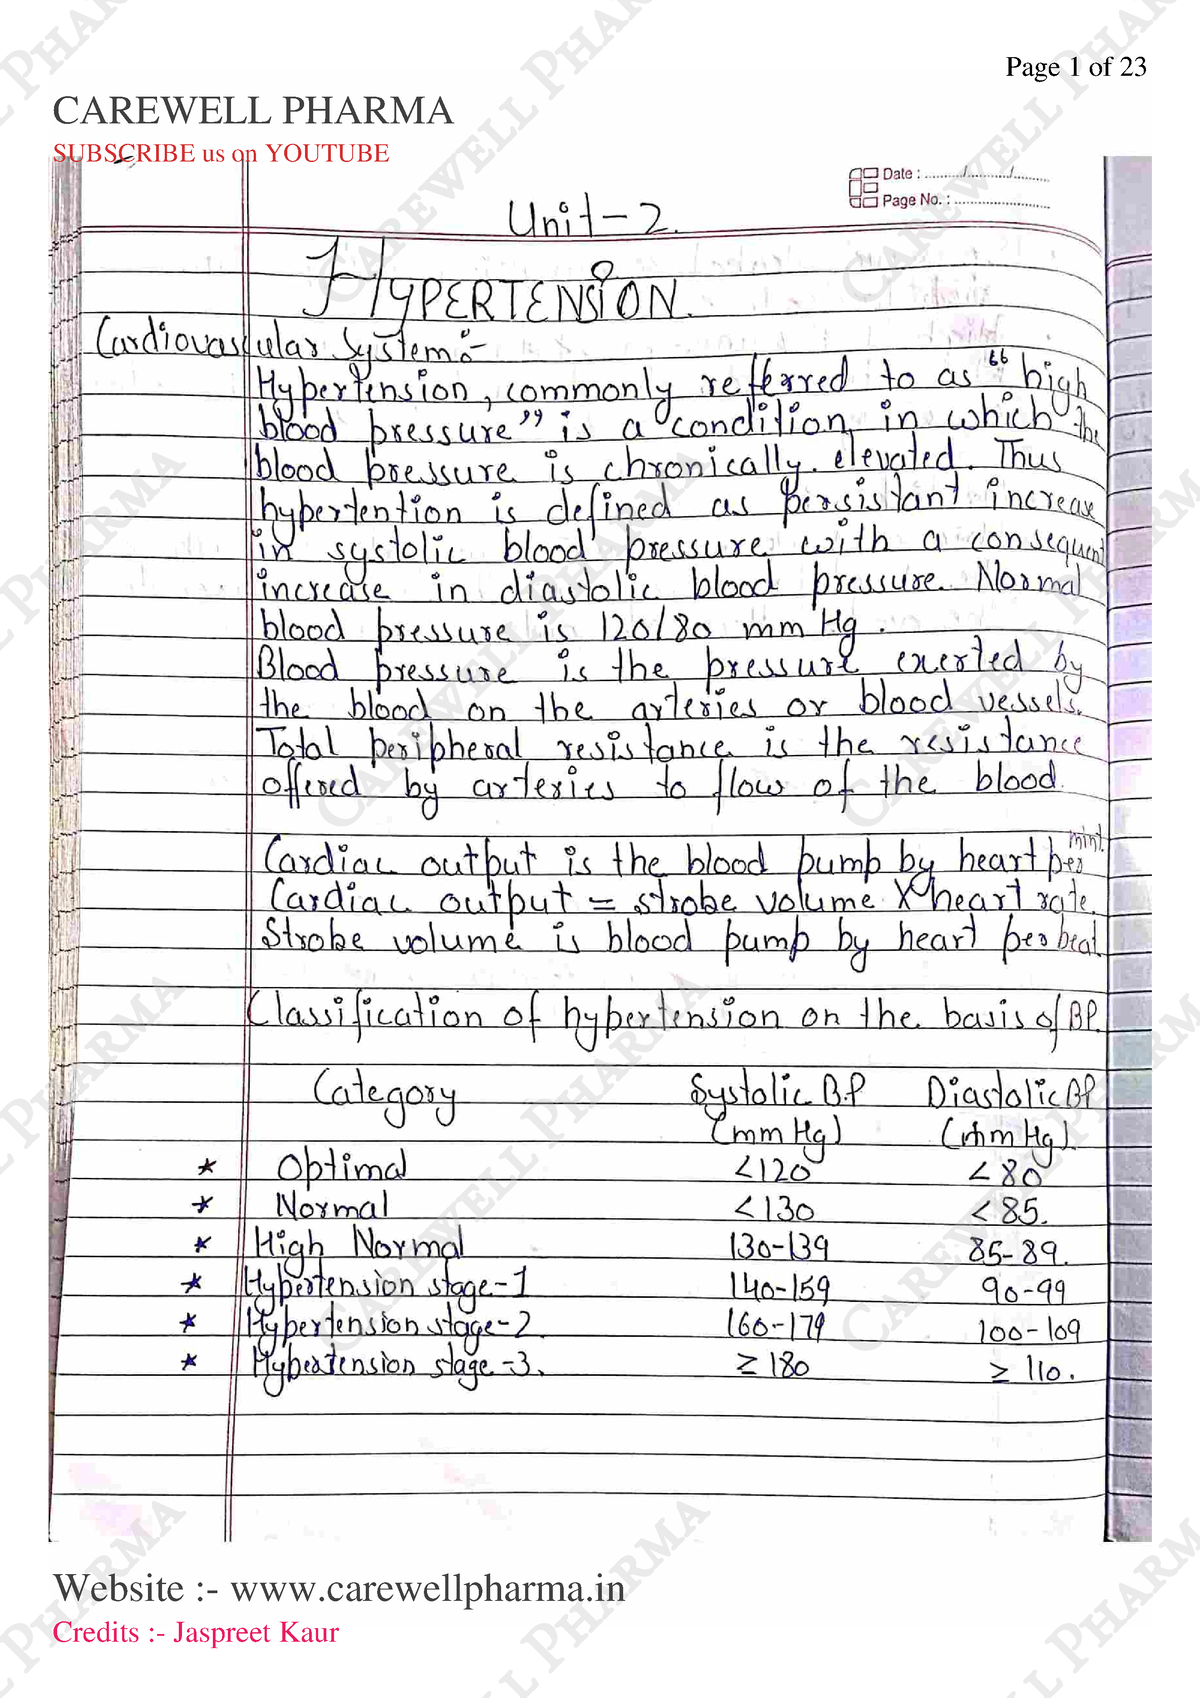 Page 1 of 23
CAREWELL PHARMA
SUBSCRIBE us on YOUTUBE
Date : ............/............/..........
Page No. : ..........................
Unit-2.
HYPERTENSION.
Cardiovascular System:-
Hypertension, commonly referred to as "high
blood pressure" is a condition in which the
blood pressure is chronically. elevated. Thus
hypertention is defined as persistant increase
in systolic blood pressure with a consequent
increase in diastolic blood pressure. Normal
blood pressure is 120/80 mm Hg.
Blood pressure is the pressure exerted by
the blood on the arteries or blood vessels.
Total peripheral resistance is the resistance
offered by arteries to flow of the blood.
Cardiac output is the blood pump by heart per mint.
Cardiac output = strobe volume X heart rate.
Strobe volume is blood pump by heart per beat.
Classification of hypertension on the basis of BP.
Category Systolic B.P Diastolic BP
(mm Hg) (mm Hg)
* Optimal <120 <80
* Normal <130 <85.
* High Normal 130-139 85-89.
* Hypertension stage-1 140-159 90-99
* Hypertension stage-2. 160-179 100-109
* Hypertension stage-3. ≥180 ≥110.
Website :- www.carewellpharma.in
Credits :- Jaspreet Kaur
CAREWELL PHARMA